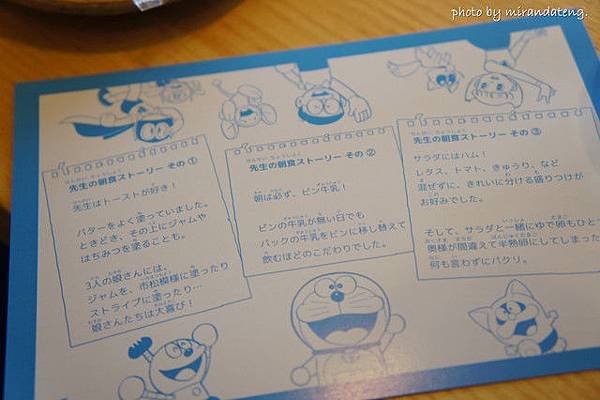 photo by mirandateng.
せんせい ちょうしょく
先生の朝食ストーリー その ①
先生はトーストが好き!
バターをよく塗っていました。
ときどき、その上にジャムや
はちみつを塗ることも。
3人の娘さんには、
ジャムを、市松模様に塗ったり
ストライプに塗ったり…
娘さんたちは大喜び!
せんせい ちょうしょく
先生の朝食ストーリー その ②
朝は必ず、ビン牛乳!
ビンの牛乳が無い日でも
パックの牛乳をビンに移し替えて
飲むほどのこだわりでした。
せんせい ちょうしょく
先生の朝食ストーリー その ③
サラダにはハム!
レタス、トマト、きゅうり、など
混ぜずに、きれいに分ける盛りつけが
お好みでした。
そして、サラダと一緒にゆで卵もひと
奥様が間違えて半熟卵にしてしまった
何も言わずにパクリ。